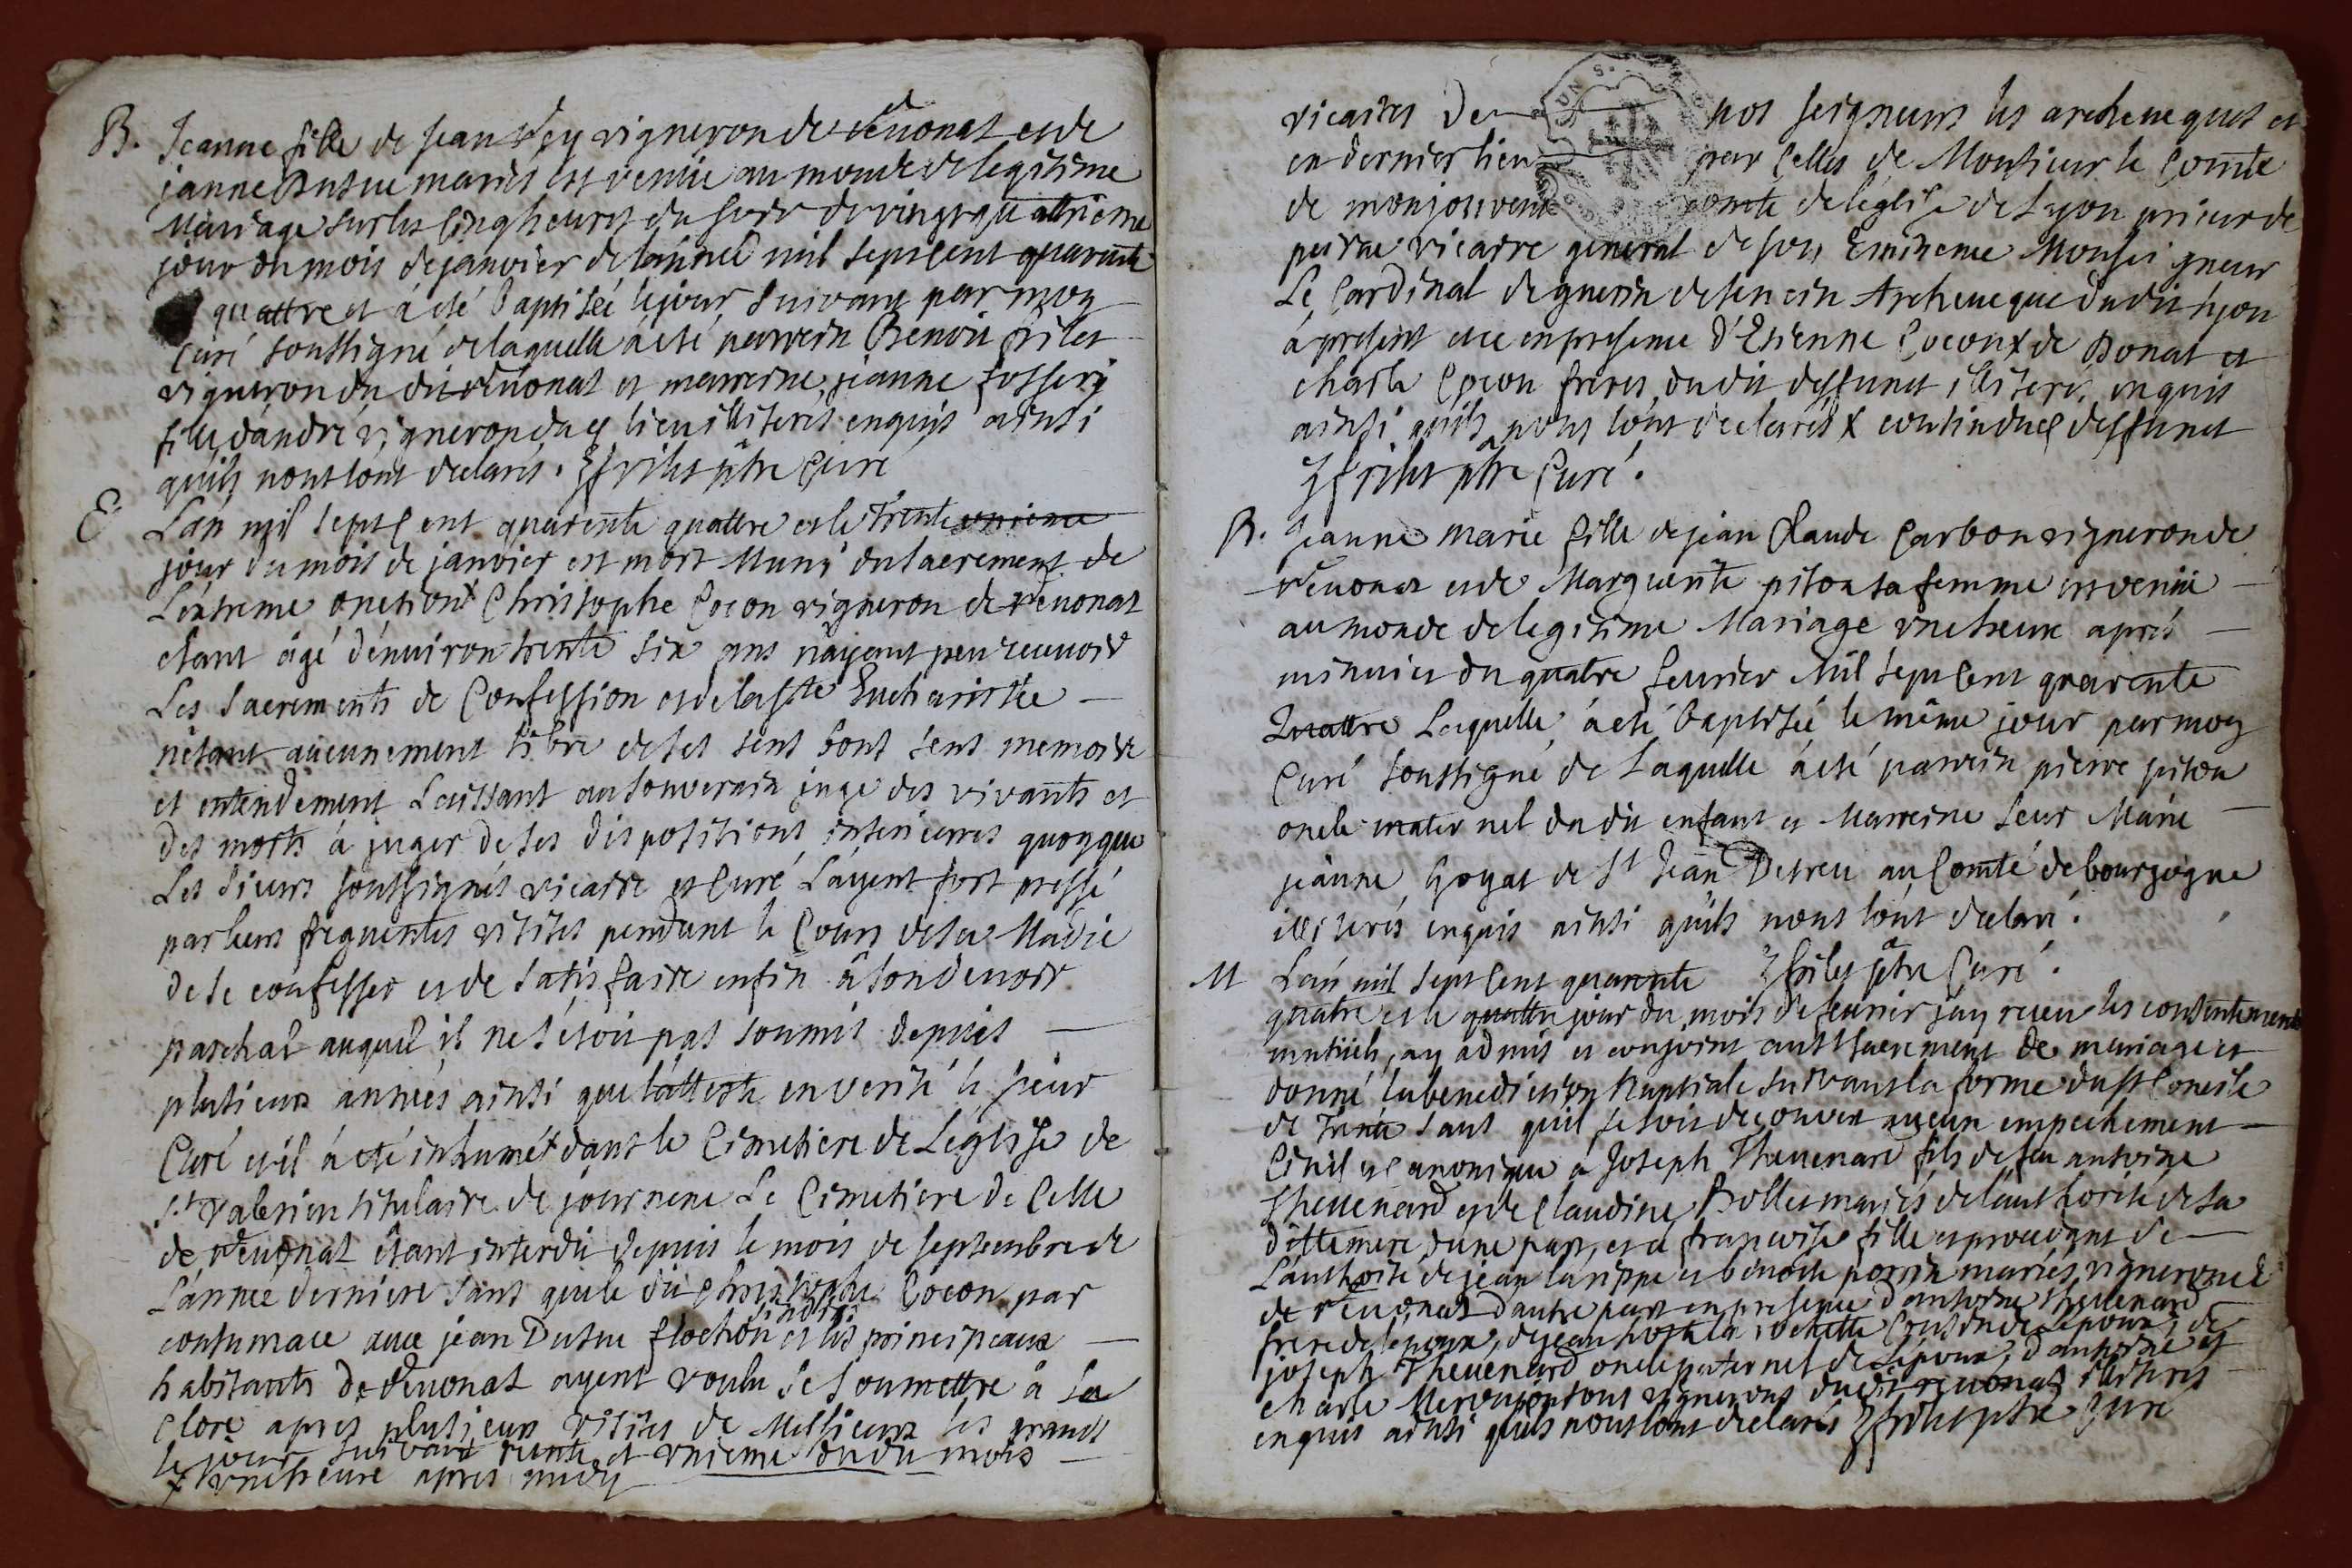 B. Jeanne fille de Jean Rey vigneron de reuonas et de
janne Dutue mariés est venüe au monde de legitime
Mariage sur les cinq heures du soir du vingt quattrieme
jour du mois de janvier de lannée mil sept cent quarante
quattre et à eté baptisée le jour suivant par moy
curé soussigné de laquelle à eté parrein Benoit frilet
vigneron du dit reuonas et marreine jeanne
fille dandré vigneron du lieu illiterés enquis ainsi
quils nous lont declarés. frilet ptre curé
E Lan mil sept cent quarente quattre et le trente unieme
jour du mois de janvier est mort Muny du sacrement de
Lextreme onction x Christophe Cocon vigneron de reuonas
etant agé denuiron trente six ans nayant peu receuoir
Les Sacrements de Confession et de la ste Eucharistie
netant aucunement libre de ses sens bons sens memoire
et entendement Laissant au souverain juge des vivants et
des morts à juger de ses dispositions interieures quoyque
Les sieurs soussignés vicaire et Curé Layent fort pressé
par leurs frequentes visites pendant le Cours de sa Maladie
de se confesser et de satisfaire enfin à son devoir
paschal auquel il ne setoit pas soumis depuis
plusieurs années ainsi que latteste en verité le sieur
Curé et il à eté inhumé x dans le Cimetiere de Leglise de
St valerien titulaire de journene Le Cimetiere de Celle
de reuonas étant interdit depuis le mois de septembre de
Lannée derniere sans que le dit Christophe Cocon par
contumace avec jean Dutue flochon sindic et les principeaux
habitants de reuonas ayent voulu se soumettre à la
clore apres plusieurs visites de Messieurs les grands
le jour suivant trente et unieme du dit mois
x une heure apres midy
vicaires de nos seigneurs les archeueques et
en dernier lieu par Celles de Monsieur le Comte
de monjouvent comte de leglise de Lyon prieur de
vicaire general de son Eminence Monseigneur
Le Cardinal de guerin de tencin Archeueque du dit Lyon
à present ete en presence d'Etienne Cocon x de Bonat et
charle Cocon freres du dit deffunct illiterés enquis
ainsi quils nous lont declarés x cousin du deffunct
frilet ptre Curé.
B. Jeanne marie fille de jean Claude Carbon vigneron de
reuonas et de Marguerite piton sa femme est venüe
au monde de legitime Mariage une heure aprés
minuict du quatre feurier Mil sept cent quarente
Quattre Laquelle à eté baptisée le même jour par moy
Curé soussigné de Laquelle à eté parrein pierre piton
oncle maternel du dit enfant et Marreine seur Marie
jeanne goyat de St Jean Detreu au Comté de bourgogne
illiterés enquis ainsi quils nous lont declaré.
M Lan mil sept cent quarente frilet ptre Curé.
quatre et le quattre jour du mois de feurier jay receu les consentements
mutuels, ay admis et conjoint au st sacrement de mariage et
donné la benediction Nuptiale suivant la forme du st Concile
de Trente sans quil se soit decouvert aucun empechement
Civil et canonique à Joseph Theuenard fils de feu antoine
Theuenard et de Claudine Bollet mariés de lauthorité de sa
ditte mere dune part, et à francoise fille et procedant de
Lauthorité de jean larippe et benoite perrin mariés vignerons
de reuonas dautre part en presence dantoine Theuenard
frere de lepoux, de jean la rochette Cousin de Lepoux, de
joseph Theuenard oncle paternel de Lepoux, dantoine et
charle tous vignerons du dit reuonas illiterés
enquis ainsi quils nous lont declarés frilet ptre Curé